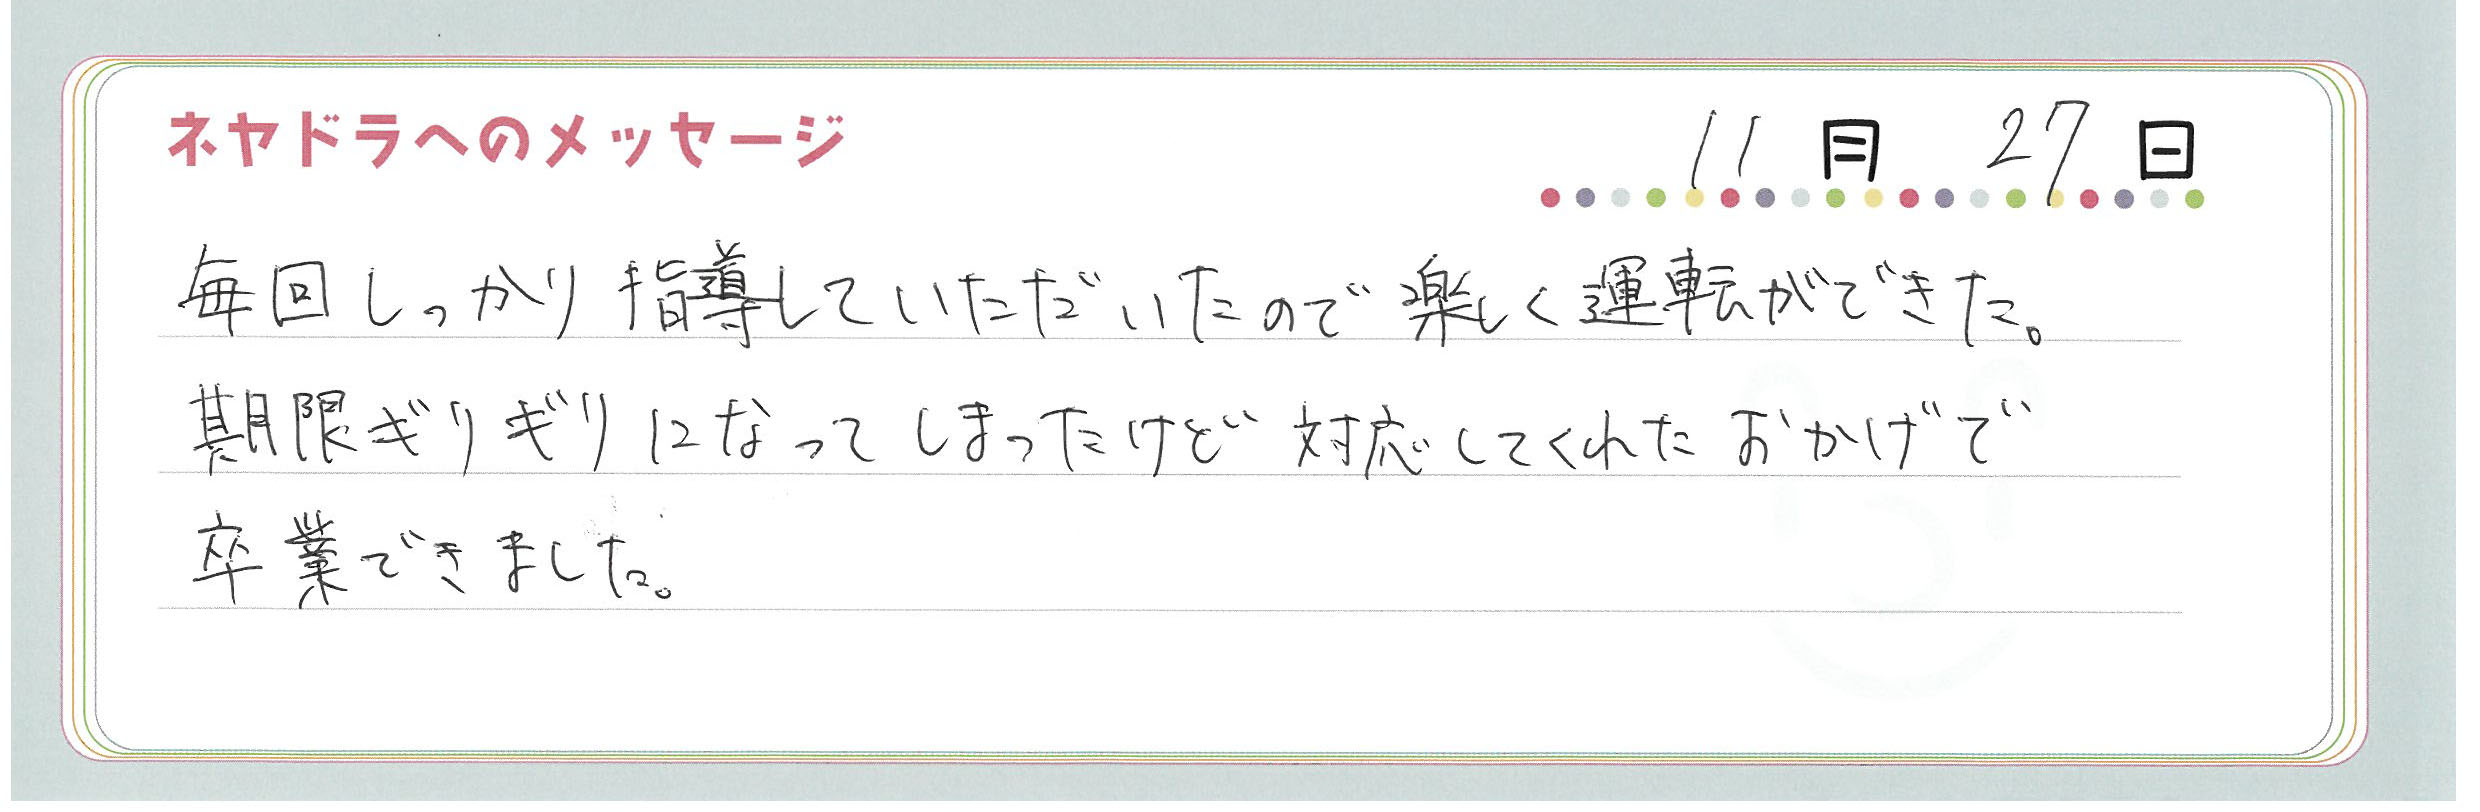 ネヤドラへのメッセージ
11月 27日
毎回しっかり指導していただいたので楽しく運転ができた。
期限ギリギリになってしまったけど対応してくれたおかげで
卒業できました。